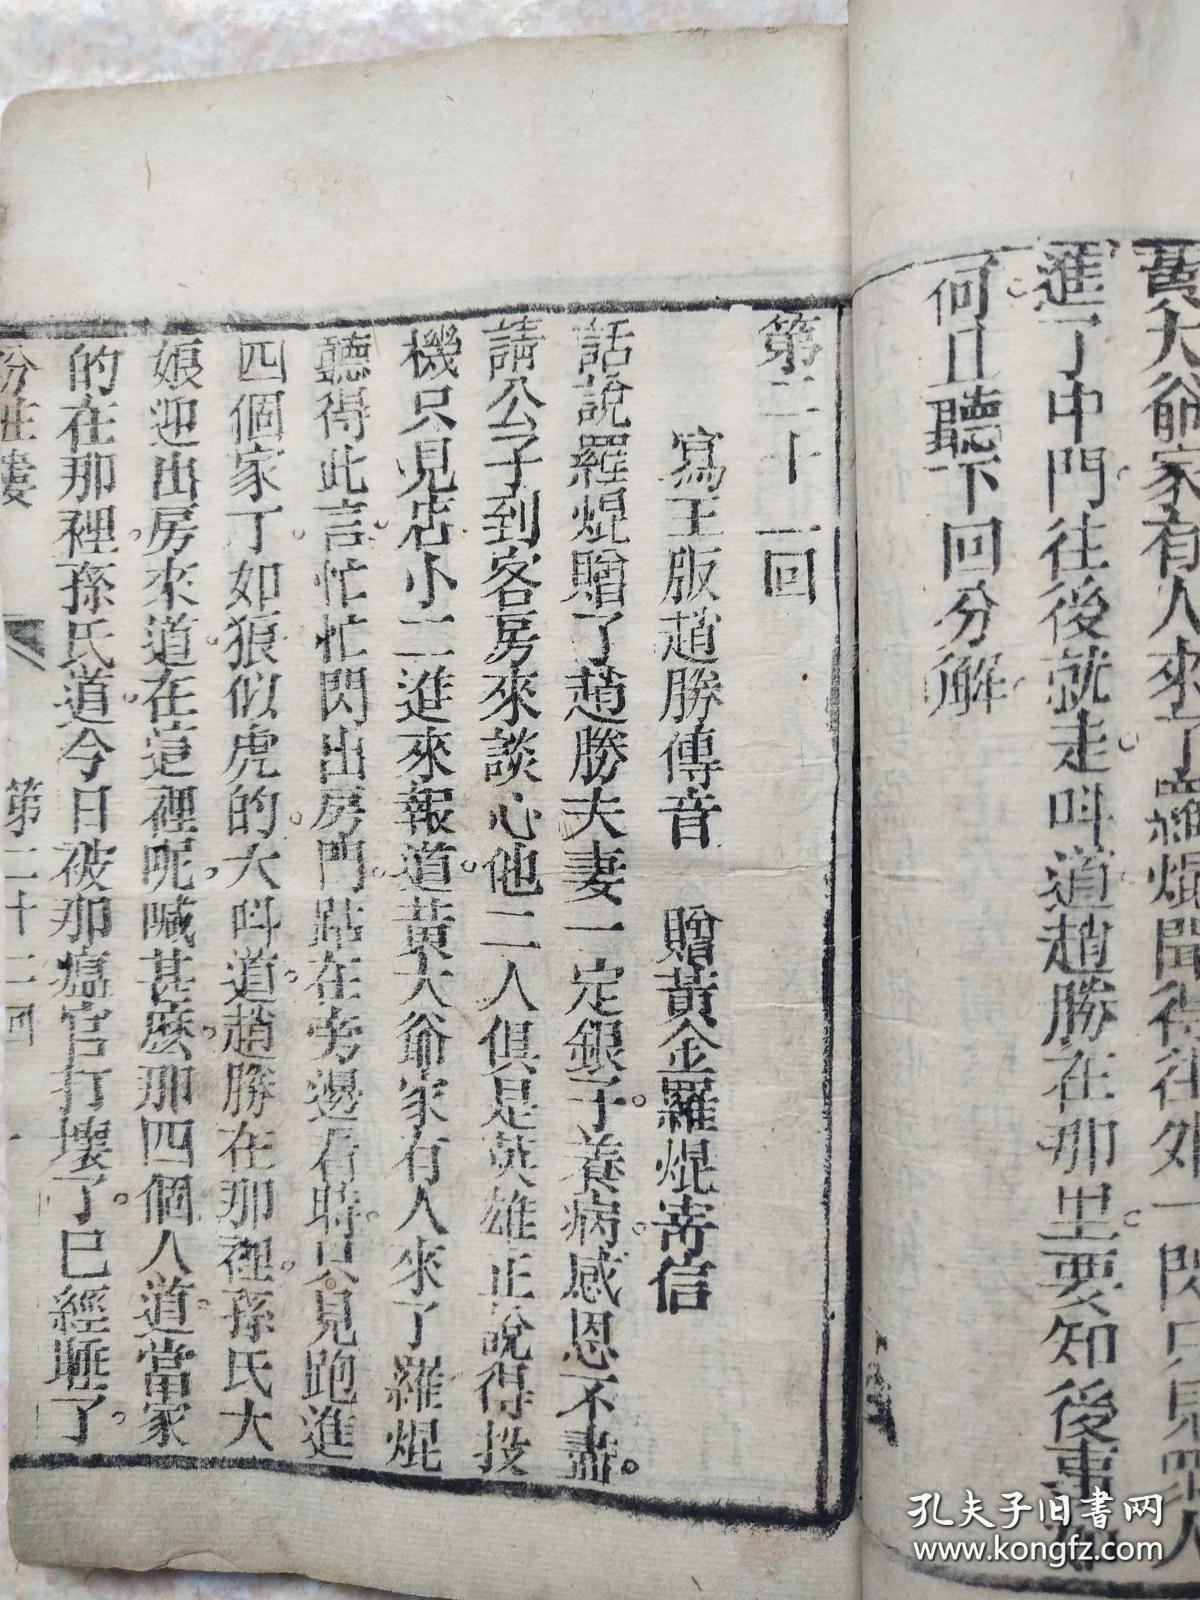 黃大爺家有人來了羅焜聞得往外一閃只見四人
進了中門往後就走呌道趙勝在那里要知後事如
何且聽下回分解
第二十二回
寫王版趙勝傳音　贈黃金羅焜寄信
話說羅焜贈了趙勝夫妻一定銀子養病感恩不盡
請公子到客房來談心他二人俱是英雄正說得投
機只見店小二進來報道黃大爺家有人來了羅焜
聽得此言忙忙閃出房門跕在旁邊看時只見跑進
四個家丁如狼似虎的大呌道趙勝在那裡孫氏大
娘迎出房來道在這裡呢喊甚麽那四個人道當家
的在那裡孫氏道今日被那瘟官打壞了已經睡了
粉粧樓　第二十二回　一
孔夫子旧书网
www.kongfz.com